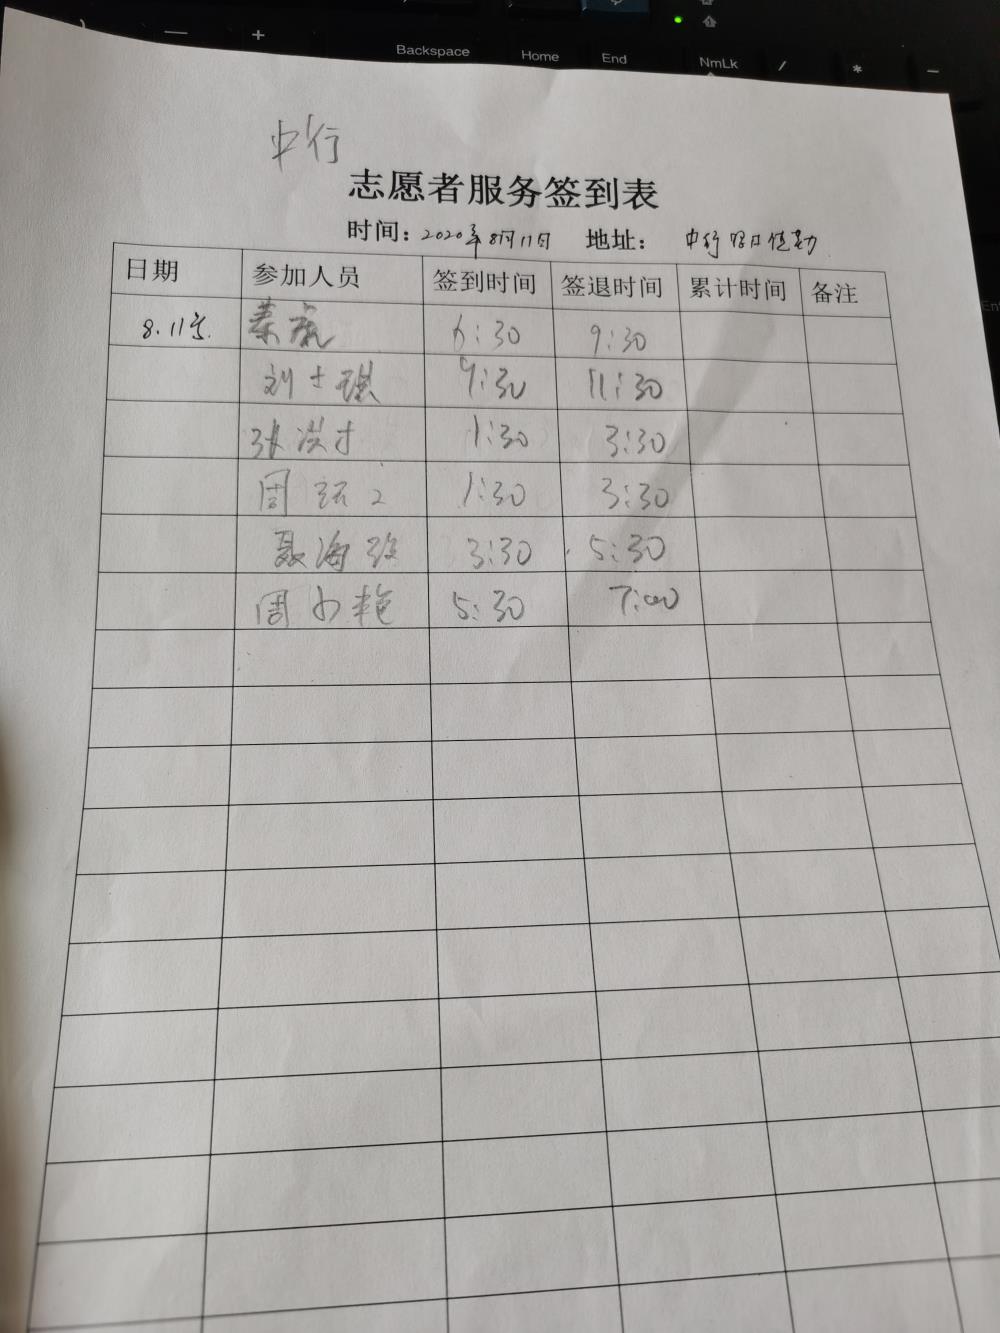 Backspace
Home
End
NmLk
中行
志愿者服务签到表
时间：2020年8月11日 地址：中行路口值勤
日期 参加人员 签到时间 签退时间 累计时间 备注
8.11号 6:30 9:30
刘士琪 9:30 11:30
张洪才 1:30 3:30
周 1:30 3:30
聂海 3:30 5:30
周小艳 5:30 7:00